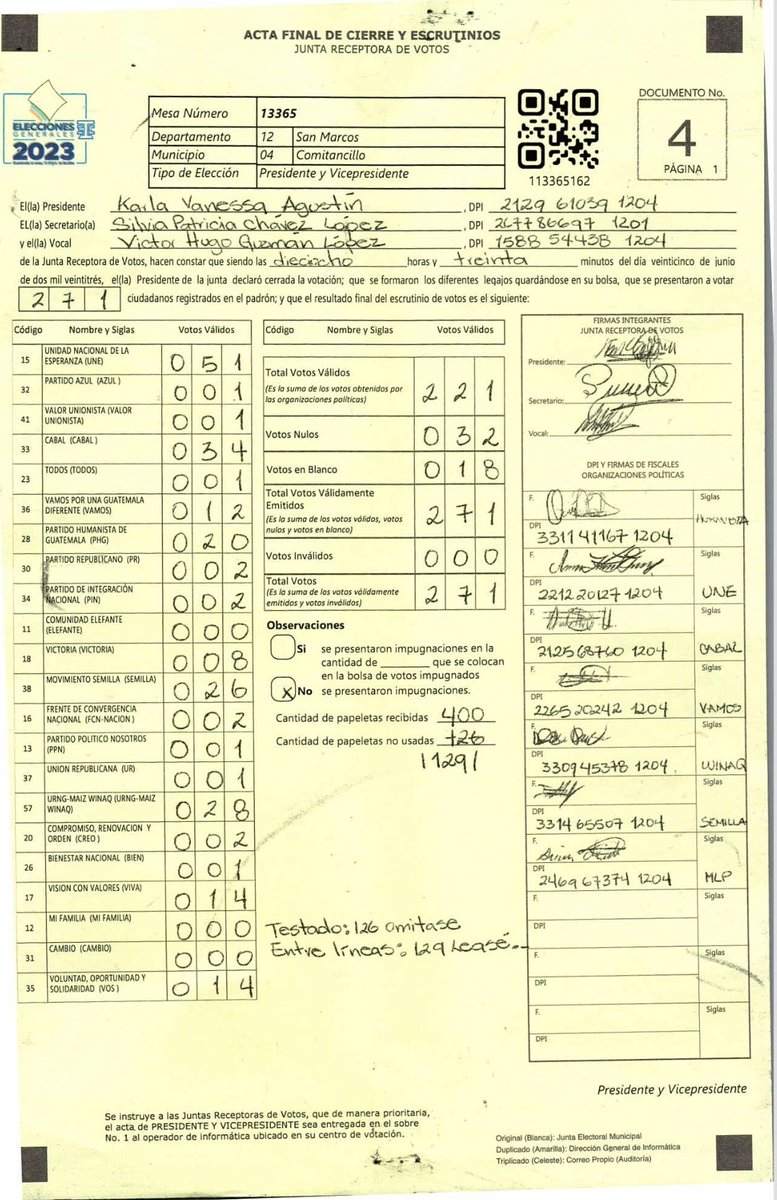 ACTA FINAL DE CIERRE Y ESCRUTINIOS
JUNTA RECEPTORA DE VOTOS
ELECCIONES
GENERALES
2023
Mesa Número 13365
Departamento 12 San Marcos
Municipio 04 Comitancillo
Tipo de Elección Presidente y Vicepresidente
113365162
DOCUMENTO No.
4
PÁGINA 1
El(la) Presidente Karla Vanessa Agustín, DPI 2129 61039 1204
EL(la) Secretario(a) Silvia Patricia Chávez López, DPI 2677 86697 1201
y el(la) Vocal Victor Hugo Guzmán López, DPI 1588 54438 1204
de la Junta Receptora de Votos, hacen constar que siendo las dieciocho horas y treinta minutos del día veinticinco de junio
de dos mil veintitrés, el(la) Presidente de la junta declaró cerrada la votación; que se formaron los diferentes legajos guardándose en su bolsa, que se presentaron a votar
271 ciudadanos registrados en el padrón; y que el resultado final del escrutinio de votos es el siguiente:
Código Nombre y Siglas Votos Válidos
15 UNIDAD NACIONAL DE LA ESPERANZA (UNE) 051
32 PARTIDO AZUL (AZUL ) 001
41 VALOR UNIONISTA (VALOR UNIONISTA) 001
33 CABAL (CABAL ) 034
23 TODOS (TODOS) 001
36 VAMOS POR UNA GUATEMALA DIFERENTE (VAMOS) 012
28 PARTIDO HUMANISTA DE GUATEMALA (PHG) 020
30 PARTIDO REPUBLICANO (PR) 002
34 PARTIDO DE INTEGRACIÓN NACIONAL (PIN) 002
11 COMUNIDAD ELEFANTE (ELEFANTE) 000
18 VICTORIA (VICTORIA) 008
38 MOVIMIENTO SEMILLA (SEMILLA) 026
16 FRENTE DE CONVERGENCIA NACIONAL (FCN-NACION ) 002
13 PARTIDO POLITICO NOSOTROS (PPN) 001
37 UNION REPUBLICANA (UR) 001
57 URNG-MAIZ WINAQ (URNG-MAIZ WINAQ) 028
20 COMPROMISO, RENOVACION Y ORDEN (CREO ) 002
26 BIENESTAR NACIONAL (BIEN) 001
17 VISION CON VALORES (VIVA) 014
12 MI FAMILIA (MI FAMILIA) 000
31 CAMBIO (CAMBIO) 000
35 VOLUNTAD, OPORTUNIDAD Y SOLIDARIDAD (VOS ) 014
Código Nombre y Siglas Votos Válidos
Total Votos Válidos 221
(Es la suma de los votos obtenidos por las organizaciones políticas)
Votos Nulos 032
Votos en Blanco 018
Total Votos Válidamente Emitidos 271
(Es la suma de los votos válidos, votos nulos y votos en blanco)
Votos Inválidos 000
Total Votos 271
(Es la suma de los votos válidamente emitidos y votos inválidos)
Observaciones
Si se presentaron impugnaciones en la
cantidad de ________ que se colocan
en la bolsa de votos impugnados
X No se presentaron impugnaciones.
Cantidad de papeletas recibidas 400
Cantidad de papeletas no usadas 126
1129/
Testado: 126 omitase
Entre líneas: 129 Lease.
FIRMAS INTEGRANTES
JUNTA RECEPTORA DE VOTOS
Presidente:
Secretario:
Vocal:
DPI Y FIRMAS DE FISCALES
ORGANIZACIONES POLÍTICAS
F. Siglas
DPI
3311 41167 1204
F. Siglas
DPI
2212 20127 1204 UNE
F. Siglas
DPI
2125 68760 1204 CABAL
F. Siglas
DPI
2265 20242 1204 VAMOS
F. Siglas
DPI
3309 45378 1204 WINAQ
F. Siglas
DPI
3314 65507 1204 SEMILLA
F. Siglas
DPI
2469 67374 1204 MLP
F. Siglas
DPI
F. Siglas
DPI
F. Siglas
DPI
Presidente y Vicepresidente
Se instruye a las Juntas Receptoras de Votos, que de manera prioritaria,
el acta de PRESIDENTE Y VICEPRESIDENTE sea entregada en el sobre
No. 1 al operador de informática ubicado en su centro de votación.
Original (Blanca): Junta Electoral Municipal
Duplicado (Amarilla): Dirección General de Informática
Triplicado (Celeste): Correo Propio (Auditoría)